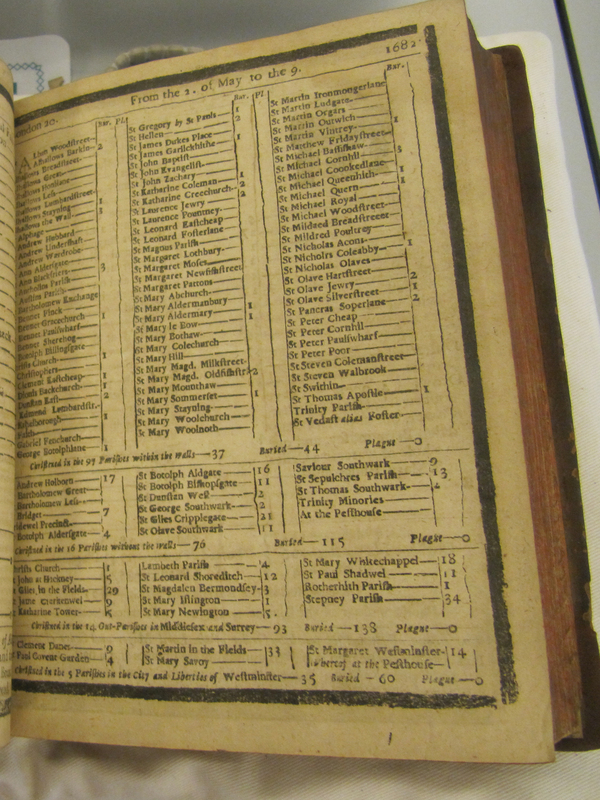 London 20. From the 2. of May to the 9. 1682
Bur. Pl.
Alban Woodstreet
Alhallows Barkin 2
Alhallows Breadstreet
Alhallows Great
Alhallows Honilane
Alhallows Less
Alhallows Lumbardstreet
Alhallows Stayning 1
Alhallows the Wall 3
Alphage
Andrew Hubbard
Andrew Undershaft
Andrew Wardrobe
Ann Aldersgate 3
Ann Blackfriers
Antholins Parish
Austins Parish
Bartholomew Exchange
Bennet Finck
Bennet Gracechurch 1
Bennet Paulswharf
Bennet Sherehog
Botolph Billingsgate
Christs Church 1
Christophers
Clement Eastcheap 1
Dionis Backchurch 1
Dunstan East 2
Edmund Lombardstr.
Ethelborough 1
Faiths
Gabriel Fenchurch
George Botolphlane 1
Bur. Pl
St Gregory by St Pauls 2
St Hellen
St James Dukes Place 1
St James Garlickhithe
St John Baptist
St John Evangelist
St John Zachary 1
St Katharine Coleman 2
St Katharine Creechurch 2
St Laurence Jewry
St Laurence Pountney
St Leonard Eastcheap
St Leonard Fosterlane
St Magnus Parish
St Margaret Lothbury
St Margaret Moses
St Margaret Newfishstreet
St Margaret Pattons
St Mary Abchurch
St Mary Aldermanbury 1
St Mary Aldermary 1
St Mary le Bow
St Mary Bothaw
St Mary Colechurch
St Mary Hill
St Mary Magd. Milkstreet
St Mary Magd. Oldfishstr 2
St Mary Mounthaw
St Mary Sommerset 1
St Mary Stayning
St Mary Woolchurch
St Mary Woolnoth
Bur.
St Martin Ironmongerlane
St Martin Ludgate
St Martin Orgars
St Martin Outwich 1
St Martin Vintrey
St Matthew Fridaystreet
St Michael Bassishaw
St Michael Cornhil 3
St Michael Coookedlane
St Michael Queenhith 1
St Michael Quern 1
St Michael Royal
St Michael Woodstreet
St Mildred Breadstreet
St Mildred Poultrey
St Nicholas Acons
St Nicholrs Coleabby 1
St Nicholas Olaves
St Olave Hartstreet 2
St Olave Jewry 1
St Olave Silverstreet 2
St Pancras Soperlane
St Peter Cheap
St Peter Cornhil
St Peter Paulswharf
St Peter Poor
St Steven Colemanstreet
St Steven Walbrook
St Swithin
St Thomas Apostle 1
Trinity Parish
St Vedast alias Foster
Christned in the 97 Parishes within the walls—37 Buried—44 Plague—0
Andrew Holborn 17
Bartholomew Great
Bartholomew Less
Bridget 7
Bridewel Precinct
Botolph Aldersgate 4
St Botolph Aldgate 16
St Botolph Bishopsgate 11
St Dunstan West 2
St George Southwark 2
St Giles Cripplegate 21
St Olave Southwark 11
Saviour Southwark 9
St Sepulchres Parish 13
St Thomas Southwark
Trinity Minories
At the Pesthouse
Christned in the 16 Parishes without the walls—76 Buried—115 Plague—0
Christs Church 1
John at Hackney 5
Giles in the Fields 29
James Clerkenwel 9
Katharine Tower 5
Lambeth Parish 4
St Leonard Shoreditch 12
St Magdalen Bermondsey 3
St Mary Islington
St Mary Newington 5
St Mary Whitechappel 18
St Paul Shadwel 11
Rotherhith Parish 1
Stepney Parish 34
Christned in the 14 Out-Parishes in Middlesex and Surrey—93 Buried—138 Plague—0
Clement Danes 9
Paul Covent Garden 4
St Martin in the Fields 33
St Mary Savoy
St Margaret Westminster 14
whereof at the Pesthouse
Christned in the 5 Parishes in the City and Liberties of Westminster—35 Buried—60 Plague—0